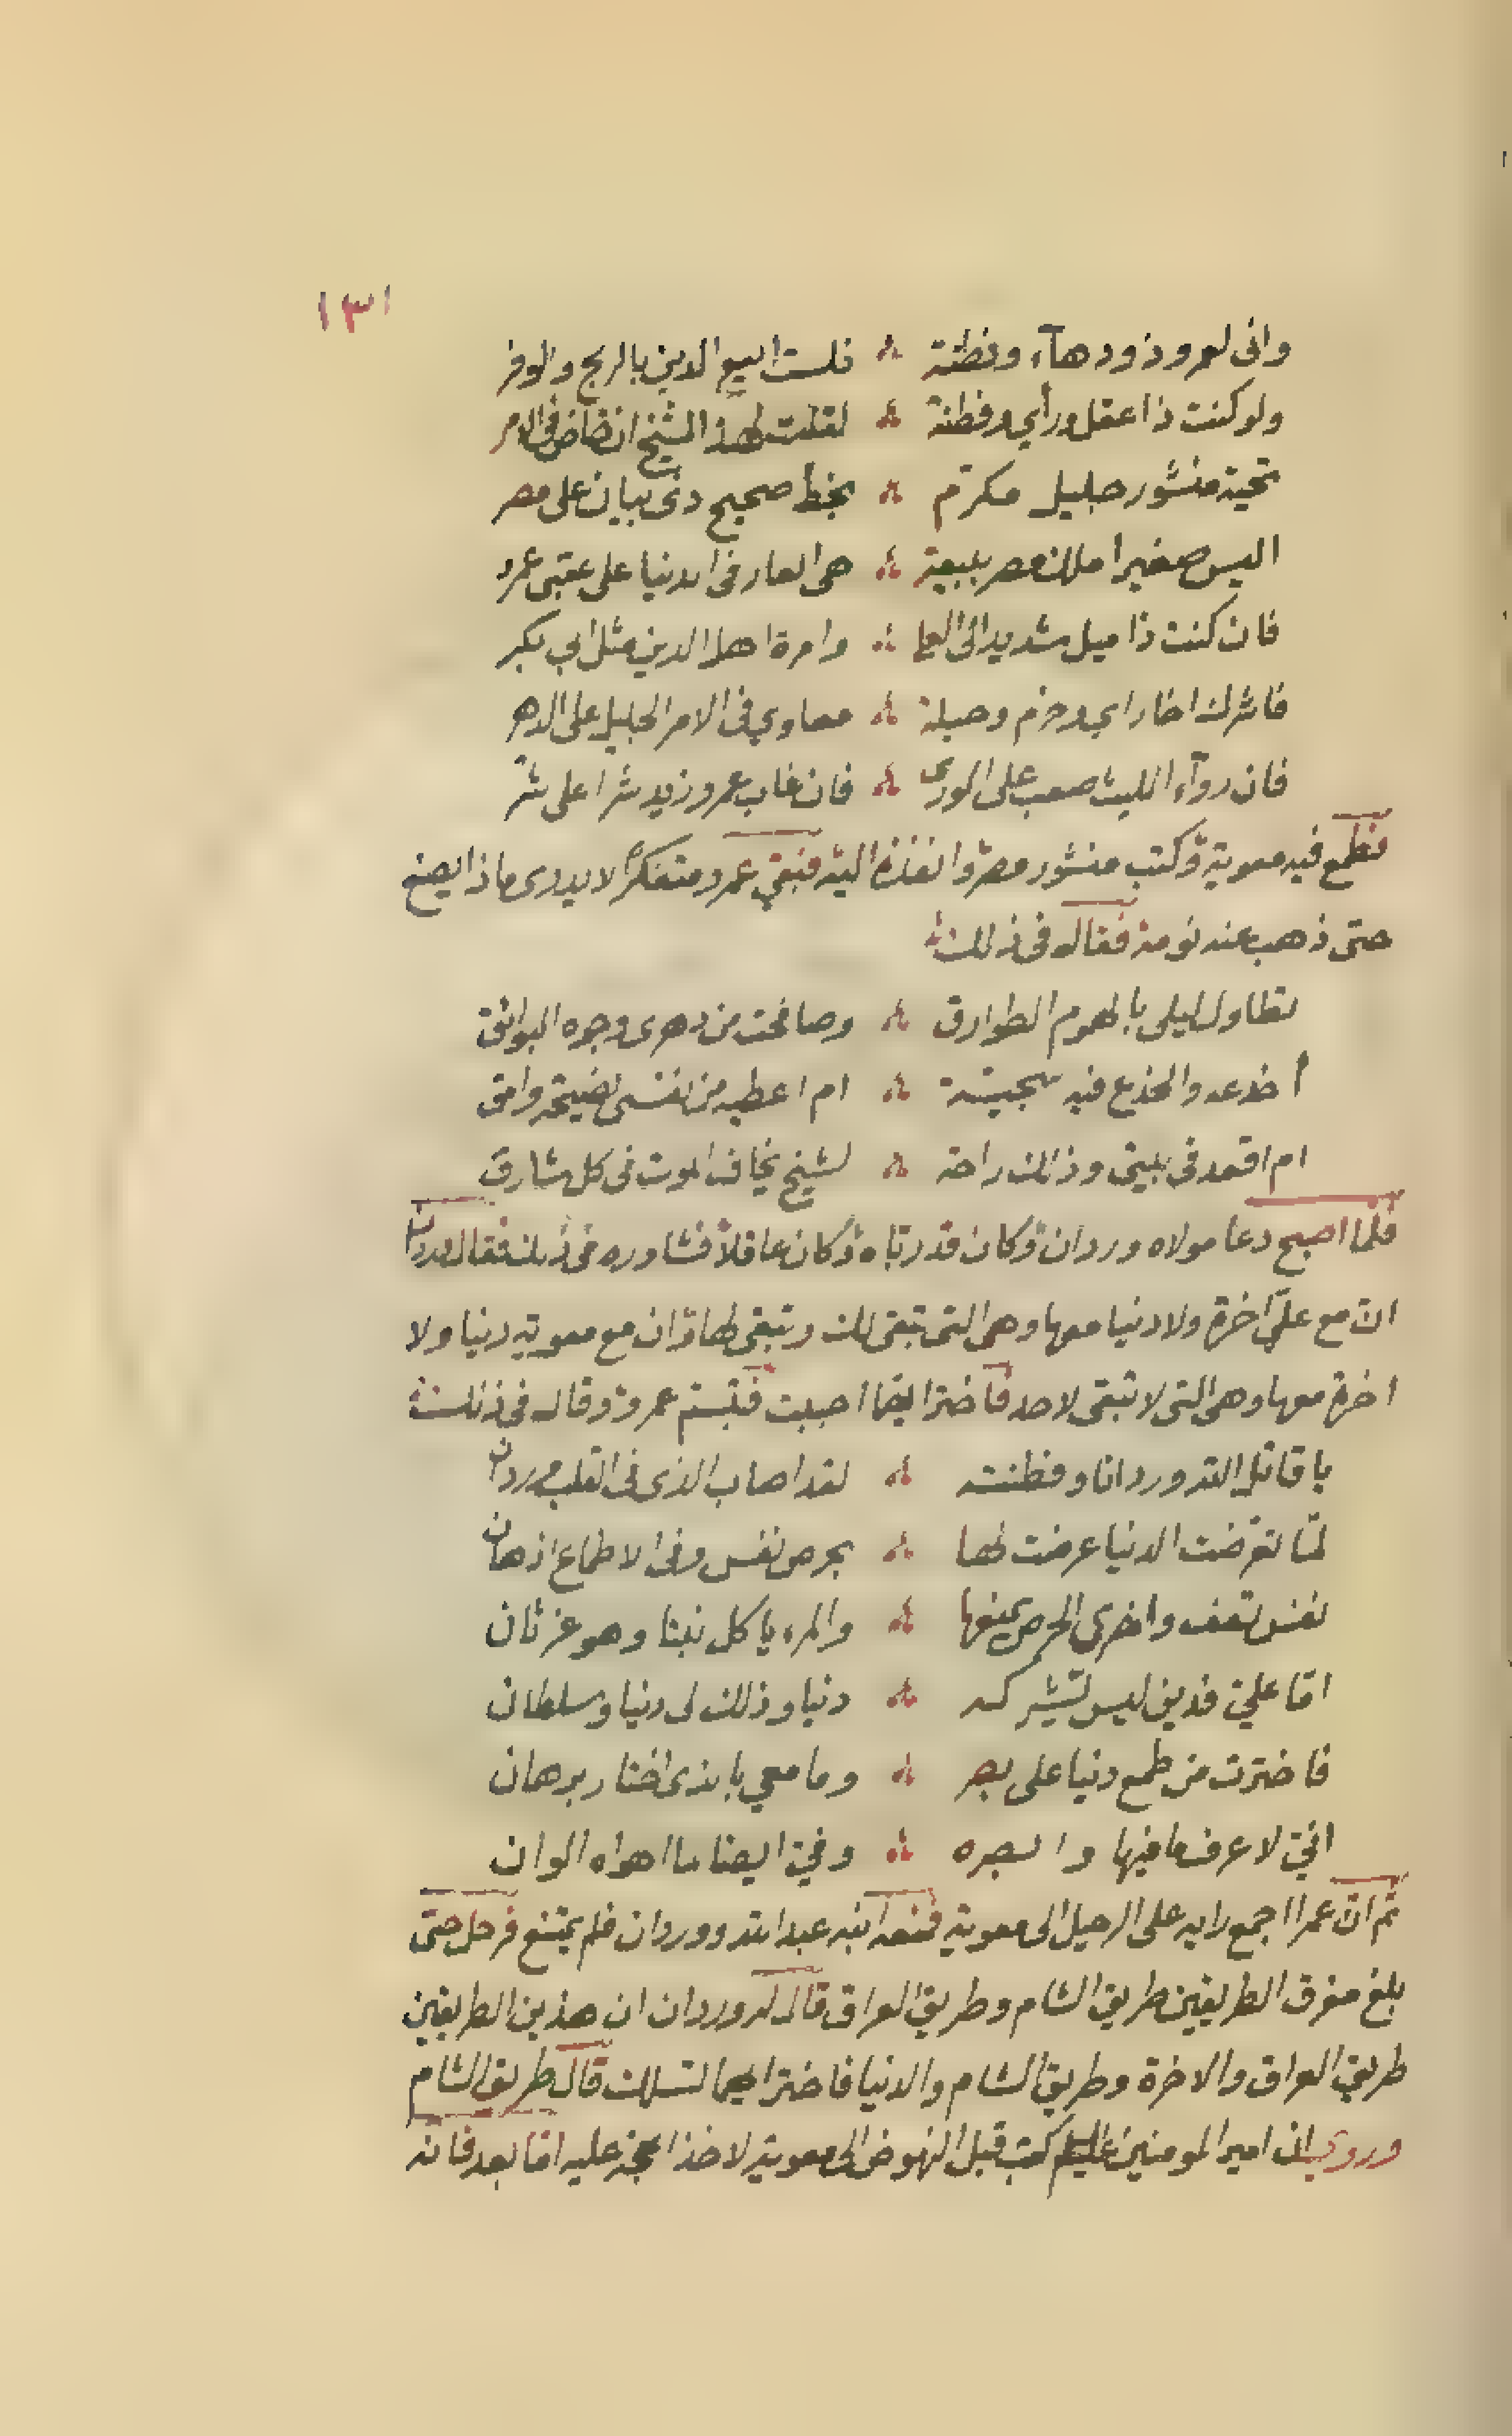 ١٣١
وانى لعمرو ذو دهآء وفطنة ؞ فلست ابيع الدين بالربح والوفر
ولو كنت ذا عقل ورأي وفطنة ؞ لقلت لهذا الشيخ ان خاض فى الامر
تحية منشور جليل مكرّم ؞ بخط صحيح ذى بيان على مصر
اليس صغيرا ملك مصر ببيعة ؞ هى العار فى الدنيا على عقبى عمرو
فان كنت ذا ميل شديد الى العلا ؞ وامرة اهل الدين مثل ابي بكر
فاشرك اخا راي وحزم وحيلة ؞ معاوي فى الامر الجليل على الدهر
فان روآء الليث صعب على الورى ؞ فان غاب عمرو زيد شرا على شرّ
فطمع فيه معوية وكتب منشور مصر وانفذه اليه فبقي عمرو متفكرًا لا يدرى ماذا يصنع
حتى ذهب عنه نومه فقال فى ذلك
تطاول ليلى بالهموم الطوارق ؞ وصافحت من دهرى وجوه البوائق
أ اخدعه والخدع فيه سجيّة ؞ ام اعطيه من نفسى نصيحة وامق
ام اقعد فى بيتى وذلك راحة ؞ لشيخ يخاف الموت فى كل شارق
فلما اصبح دعا مولاه وردان وكان قد رباه وكان عاقلًا فشاوره فى ذلك فقال وردان
انّ مع عليّ اخرة ولا دنيا معها وهى التى تبقى لك وتبقى لها وان مع معوية دنيا ولا
اخرة معها وهى التى لا تبقى لاحد فاختر ايهما احببت فتبسّم عمرو وقال فى ذلك
يا قاتل الله وردانا وفطنته ؞ لقد اصاب الذى فى القلب وردان
لمّا تعرّضت الدنيا عرضت لها ؞ بحرص نفس وفى الاطماع اذهان
نفس تعف واخرى الحرص يمنعها ؞ والمرء ياكل نبنا وهو غرثان
امّا عليّ فدين ليس تشركه ؞ دنيا وذلك لى دنيا وسلطان
فاخترت من طمع دنيا على بصر ؞ وما معي بالذى اختار برهان
انّي لاعرف ما فيها وابصره ؞ وفيّ ايضا لما اهواه الوان
ثم انّ عمرا اجمع رايه على الرحيل الى معوية فمنعه ابنه عبد الله ووردان فلم يمتنع فرحل حتى
بلغ مفرق الطريقين طريق الشام وطريق العراق قال له وردان ان هذين الطريقين
طريق العراق والاخرة وطريق الشام والدنيا فاختر ايهما لتسلك قال طريق الشام
وروي ان امير المومنين عليلم كتب قبل النهوض الى معوية لاخذ الحجة عليه امّا بعد فانه